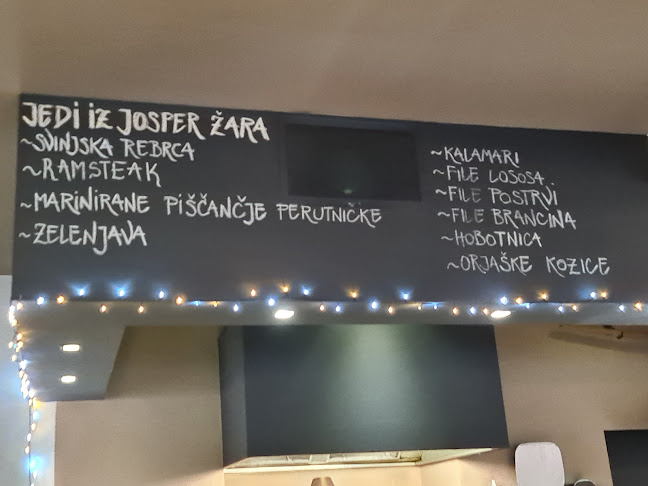 JEDI IZ JOSPER ŽARA
~SVINJSKA REBRCA
~RAMSTEAK
~MARINIRANE PIŠČANČJE PERUTNIČKE
~ZELENJAVA
~KALAMARI
~FILE LOSOSA
~FILE POSTRVI
~FILE BRANCINA
~HOBOTNICA
~ORJAŠKE KOZICE